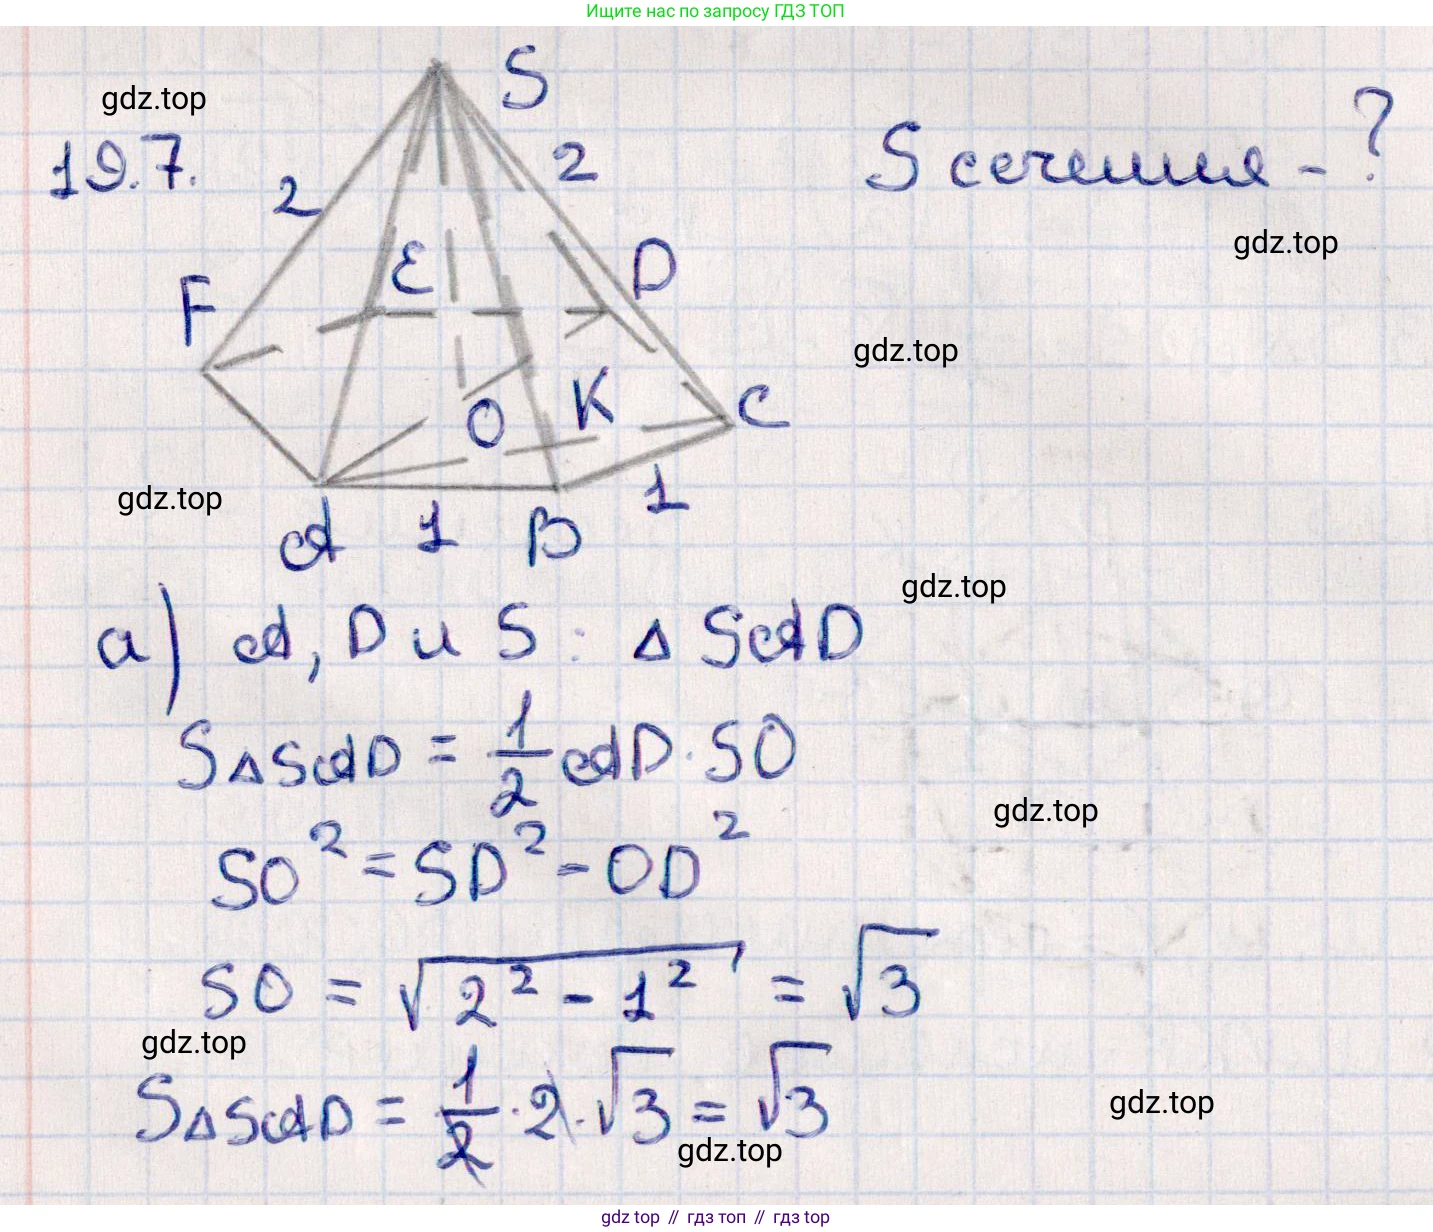 Ищите нас по запросу ГДЗ ТОП
gdz.top
19.7.
S
2
2
S сечения - ?
gdz.top
F
E
D
gdz.top
O
K
C
gdz.top
A
1
B
1
gdz.top
а) A, D и S : Δ SAD
SΔSAD = 1/2 AD · SO
gdz.top
SO² = SD² - OD²
SO = √(2² - 1²) = √3
gdz.top
SΔSAD = 1/2 · 2 · √3 = √3
gdz.top
gdz.top
gdz top // гдз топ // гдз top